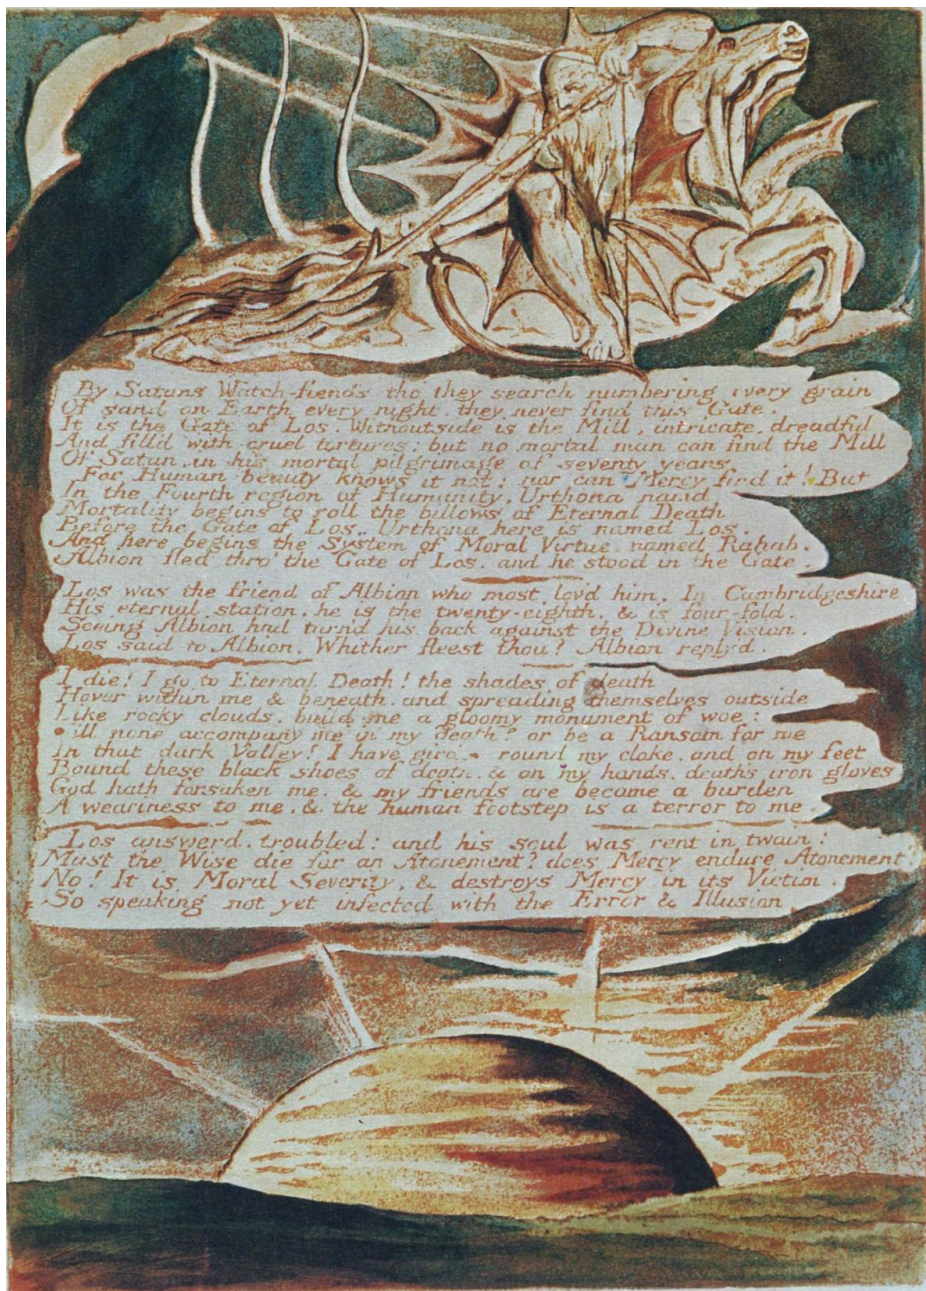 By Satans Watch-fiends tho' they search numbering every grain
Of sand on Earth every night, they never find this Gate.
It is the Gate of Los. Withoutside is the Mill, intricate, dreadful
And fill'd with cruel tortures; but no mortal man can find the Mill
Of Satan, in his mortal pilgrimage of seventy years
For Human beauty knows it not: nor can Mercy find it! But
In the Fourth region of Humanity, Urthona nam'd
Mortality begins to roll the billows of Eternal Death
Before the Gate of Los. Urthona here is named Los.
And here begins the System of Moral Virtue, named Rahab.
Albion fled thro' the Gate of Los, and he stood in the Gate.
Los was the friend of Albion who most lov'd him. In Cambridgeshire
His eternal station, he is the twenty-eighth, & is four-fold.
Seeing Albion had turn'd his back against the Divine Vision,
Los said to Albion. Whither fleest thou? Albion reply'd.
I die! I go to Eternal Death! the shades of death
Hover within me & beneath, and spreading themselves outside
Like rocky clouds, build me a gloomy monument of woe:
ill none accompany me in my death? or be a Ransom for me
In that dark Valley? I have gird round my cloke, and on my feet
Bound these black shoes of death, & on my hands, death's iron gloves
God hath forsaken me, & my friends are become a burden
A weariness to me, & the human footstep is a terror to me.
Los answerd, troubled: and his soul was rent in twain:
Must the Wise die for an Atonement? does Mercy endure Atonement
No! It is Moral Severity, & destroys Mercy in its Victim.
So speaking not yet infected with the Error & Illusion